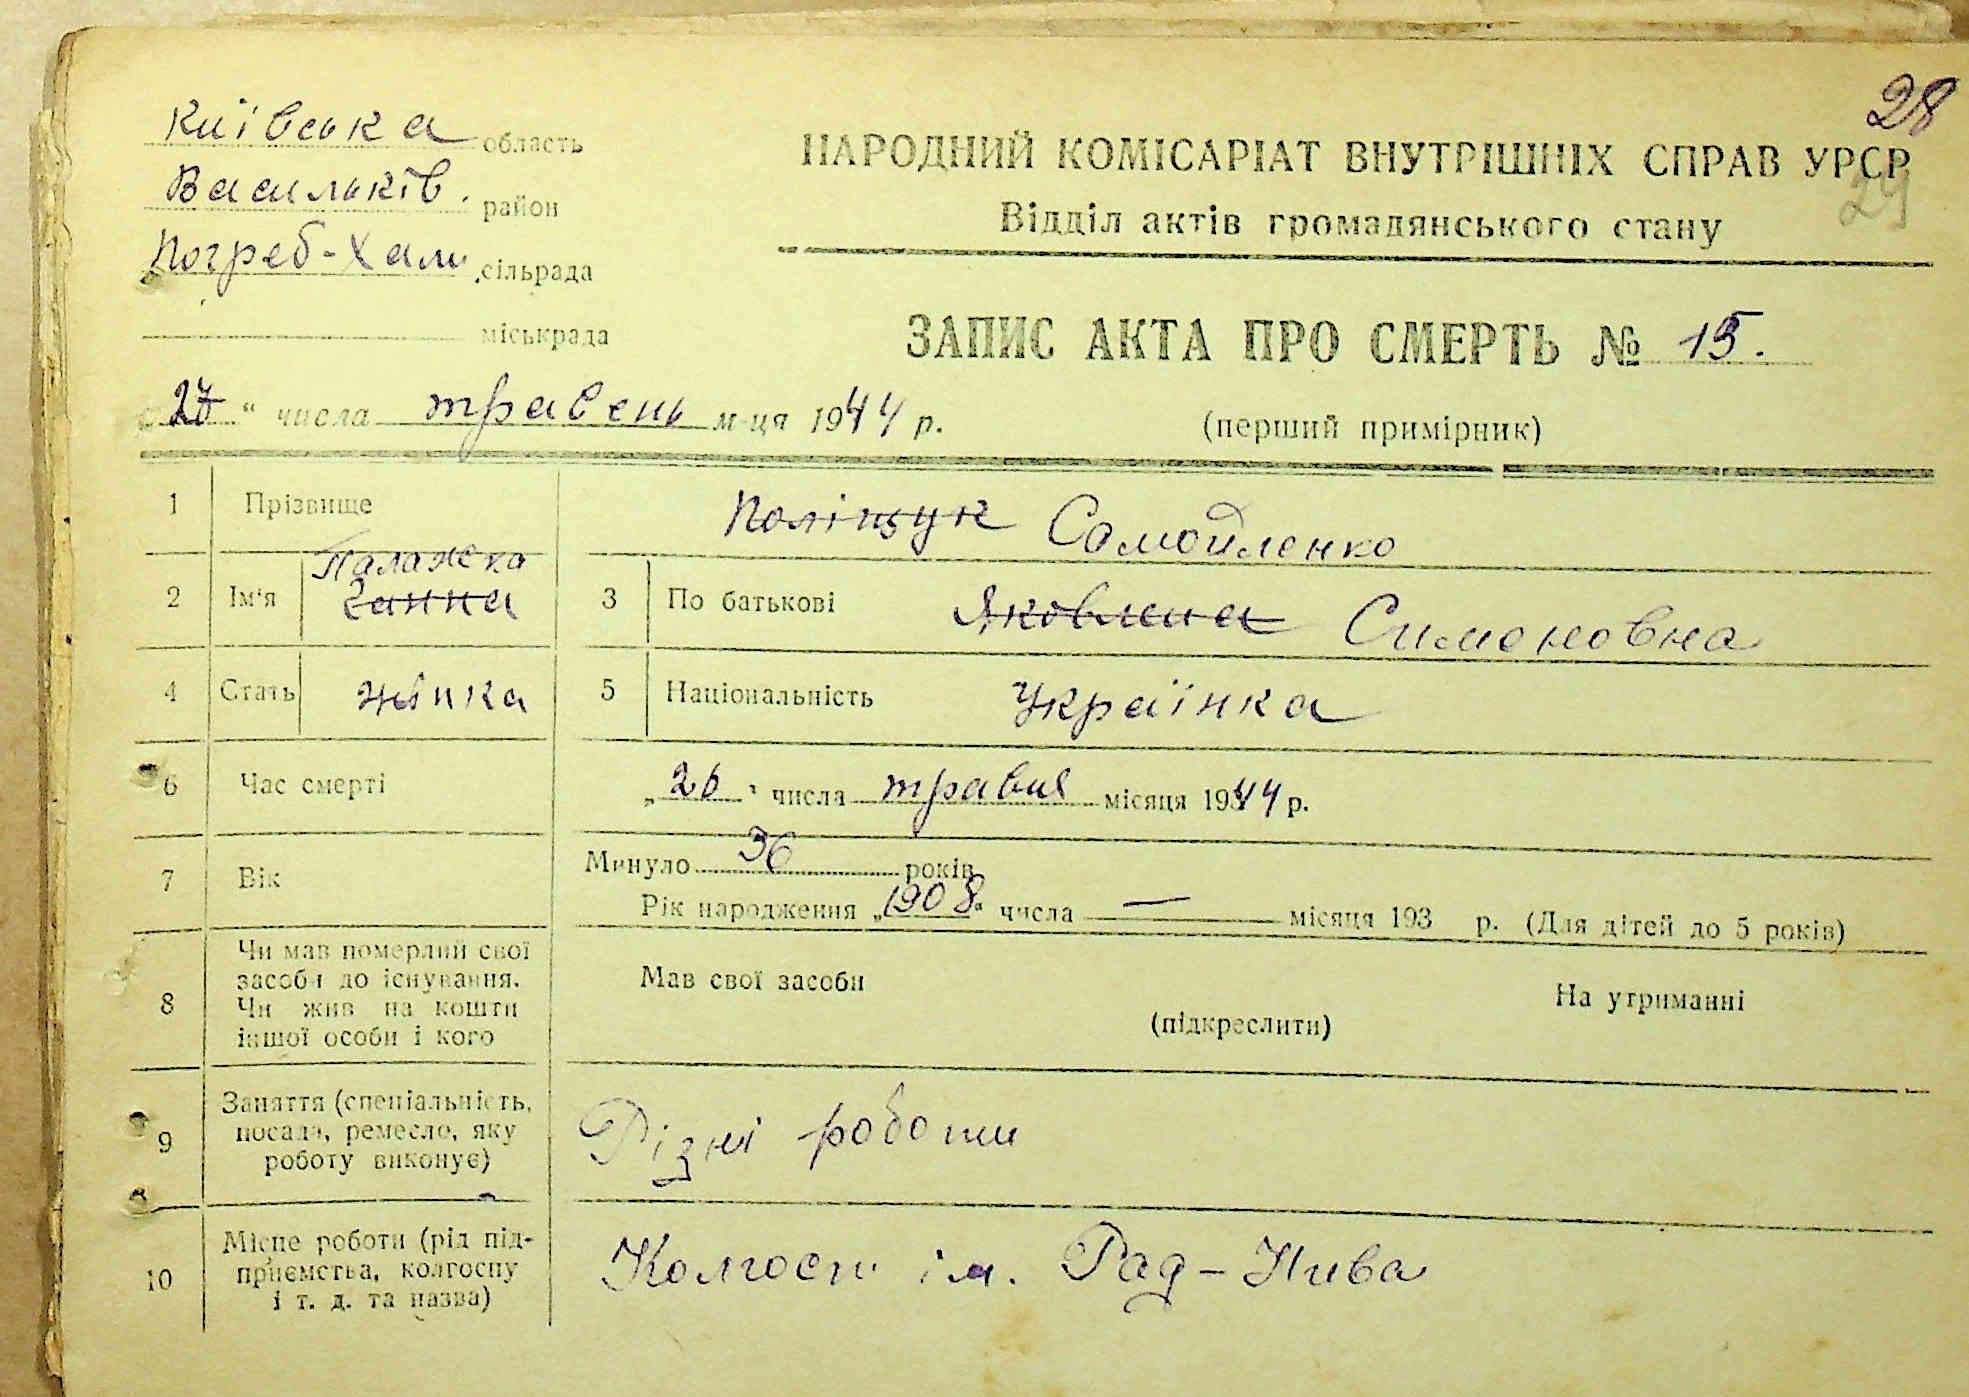 28
29
Київська область
Васильків. район
Погреб-Хам. сільрада
міськрада
НАРОДНИЙ КОМІСАРІАТ ВНУТРІШНІХ СПРАВ УРСР
Відділ актів громадянського стану
ЗАПИС АКТА ПРО СМЕРТЬ № 15.
(перший примірник)
„27“ числа травень м-ця 1944 р.
1 Прізвище Поліщук Самойленко
Палажка
2 Ім'я Ганна 3 По батькові Яковлевна Симоновна
4 Стать жінка 5 Національність Українка
6 Час смерті „26“ числа травня місяця 1944 р.
7 Вік Минуло 36 років
Рік народження „1908“ числа — місяця 193 р. (Для дітей до 5 років)
8 Чи мав померлий свої
засоби до існування.
Чи жив на кошти
іншої особи і кого
Мав свої засоби На утриманні
(підкреслити)
9 Заняття (спеціальність,
посада, ремесло, яку
роботу виконує)
Різні роботи
10 Місце роботи (рід під-
приємства, колгоспу
і т. д. та назва)
Колгосп ім. Рад-Нива